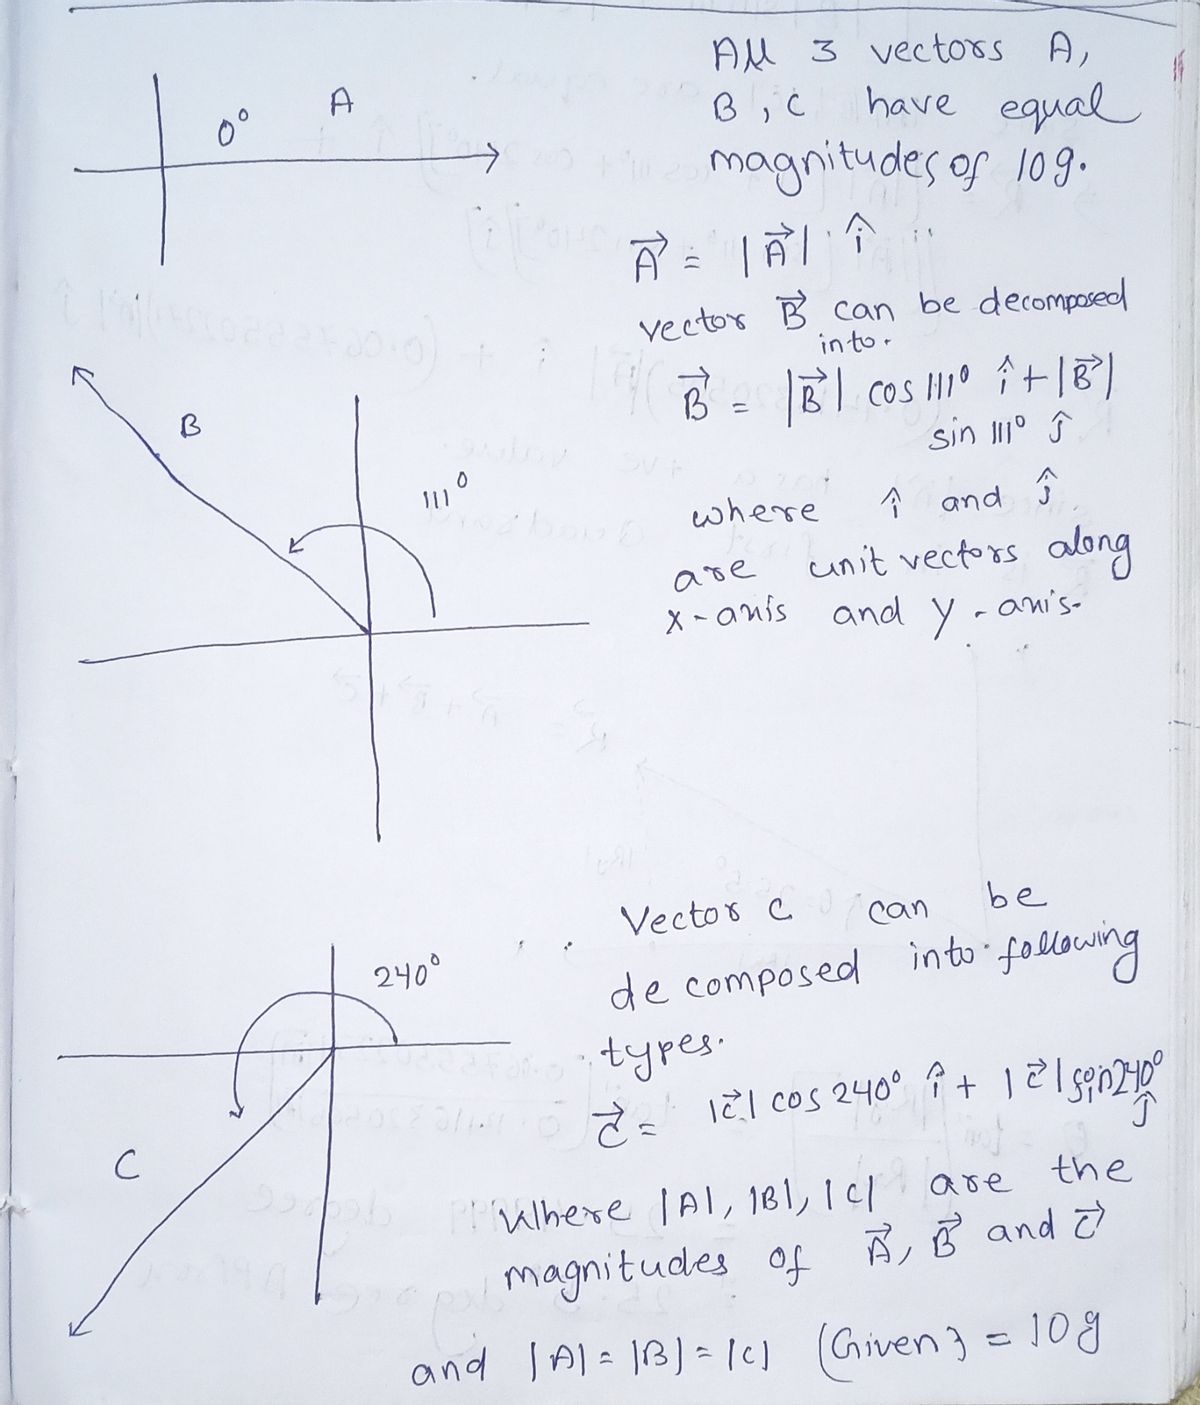 All 3 vectors A,
B, C have equal
magnitudes of 10g.
0° A
A⃗ = |A⃗| î
vector B⃗ can be decomposed
into.
B⃗ = |B⃗| cos 111° î + |B⃗|
sin 111° ĵ
B
111°
where î and ĵ
are unit vectors along
x-axis and y-axis.
Vector C can be
decomposed into following
types.
240°
C⃗ = |C⃗| cos 240° î + |C⃗| sin 240°
ĵ
C
Where |A|, |B|, |C| are the
magnitudes of A⃗, B⃗ and C⃗
and |A| = |B| = |C| (Given} = 10g